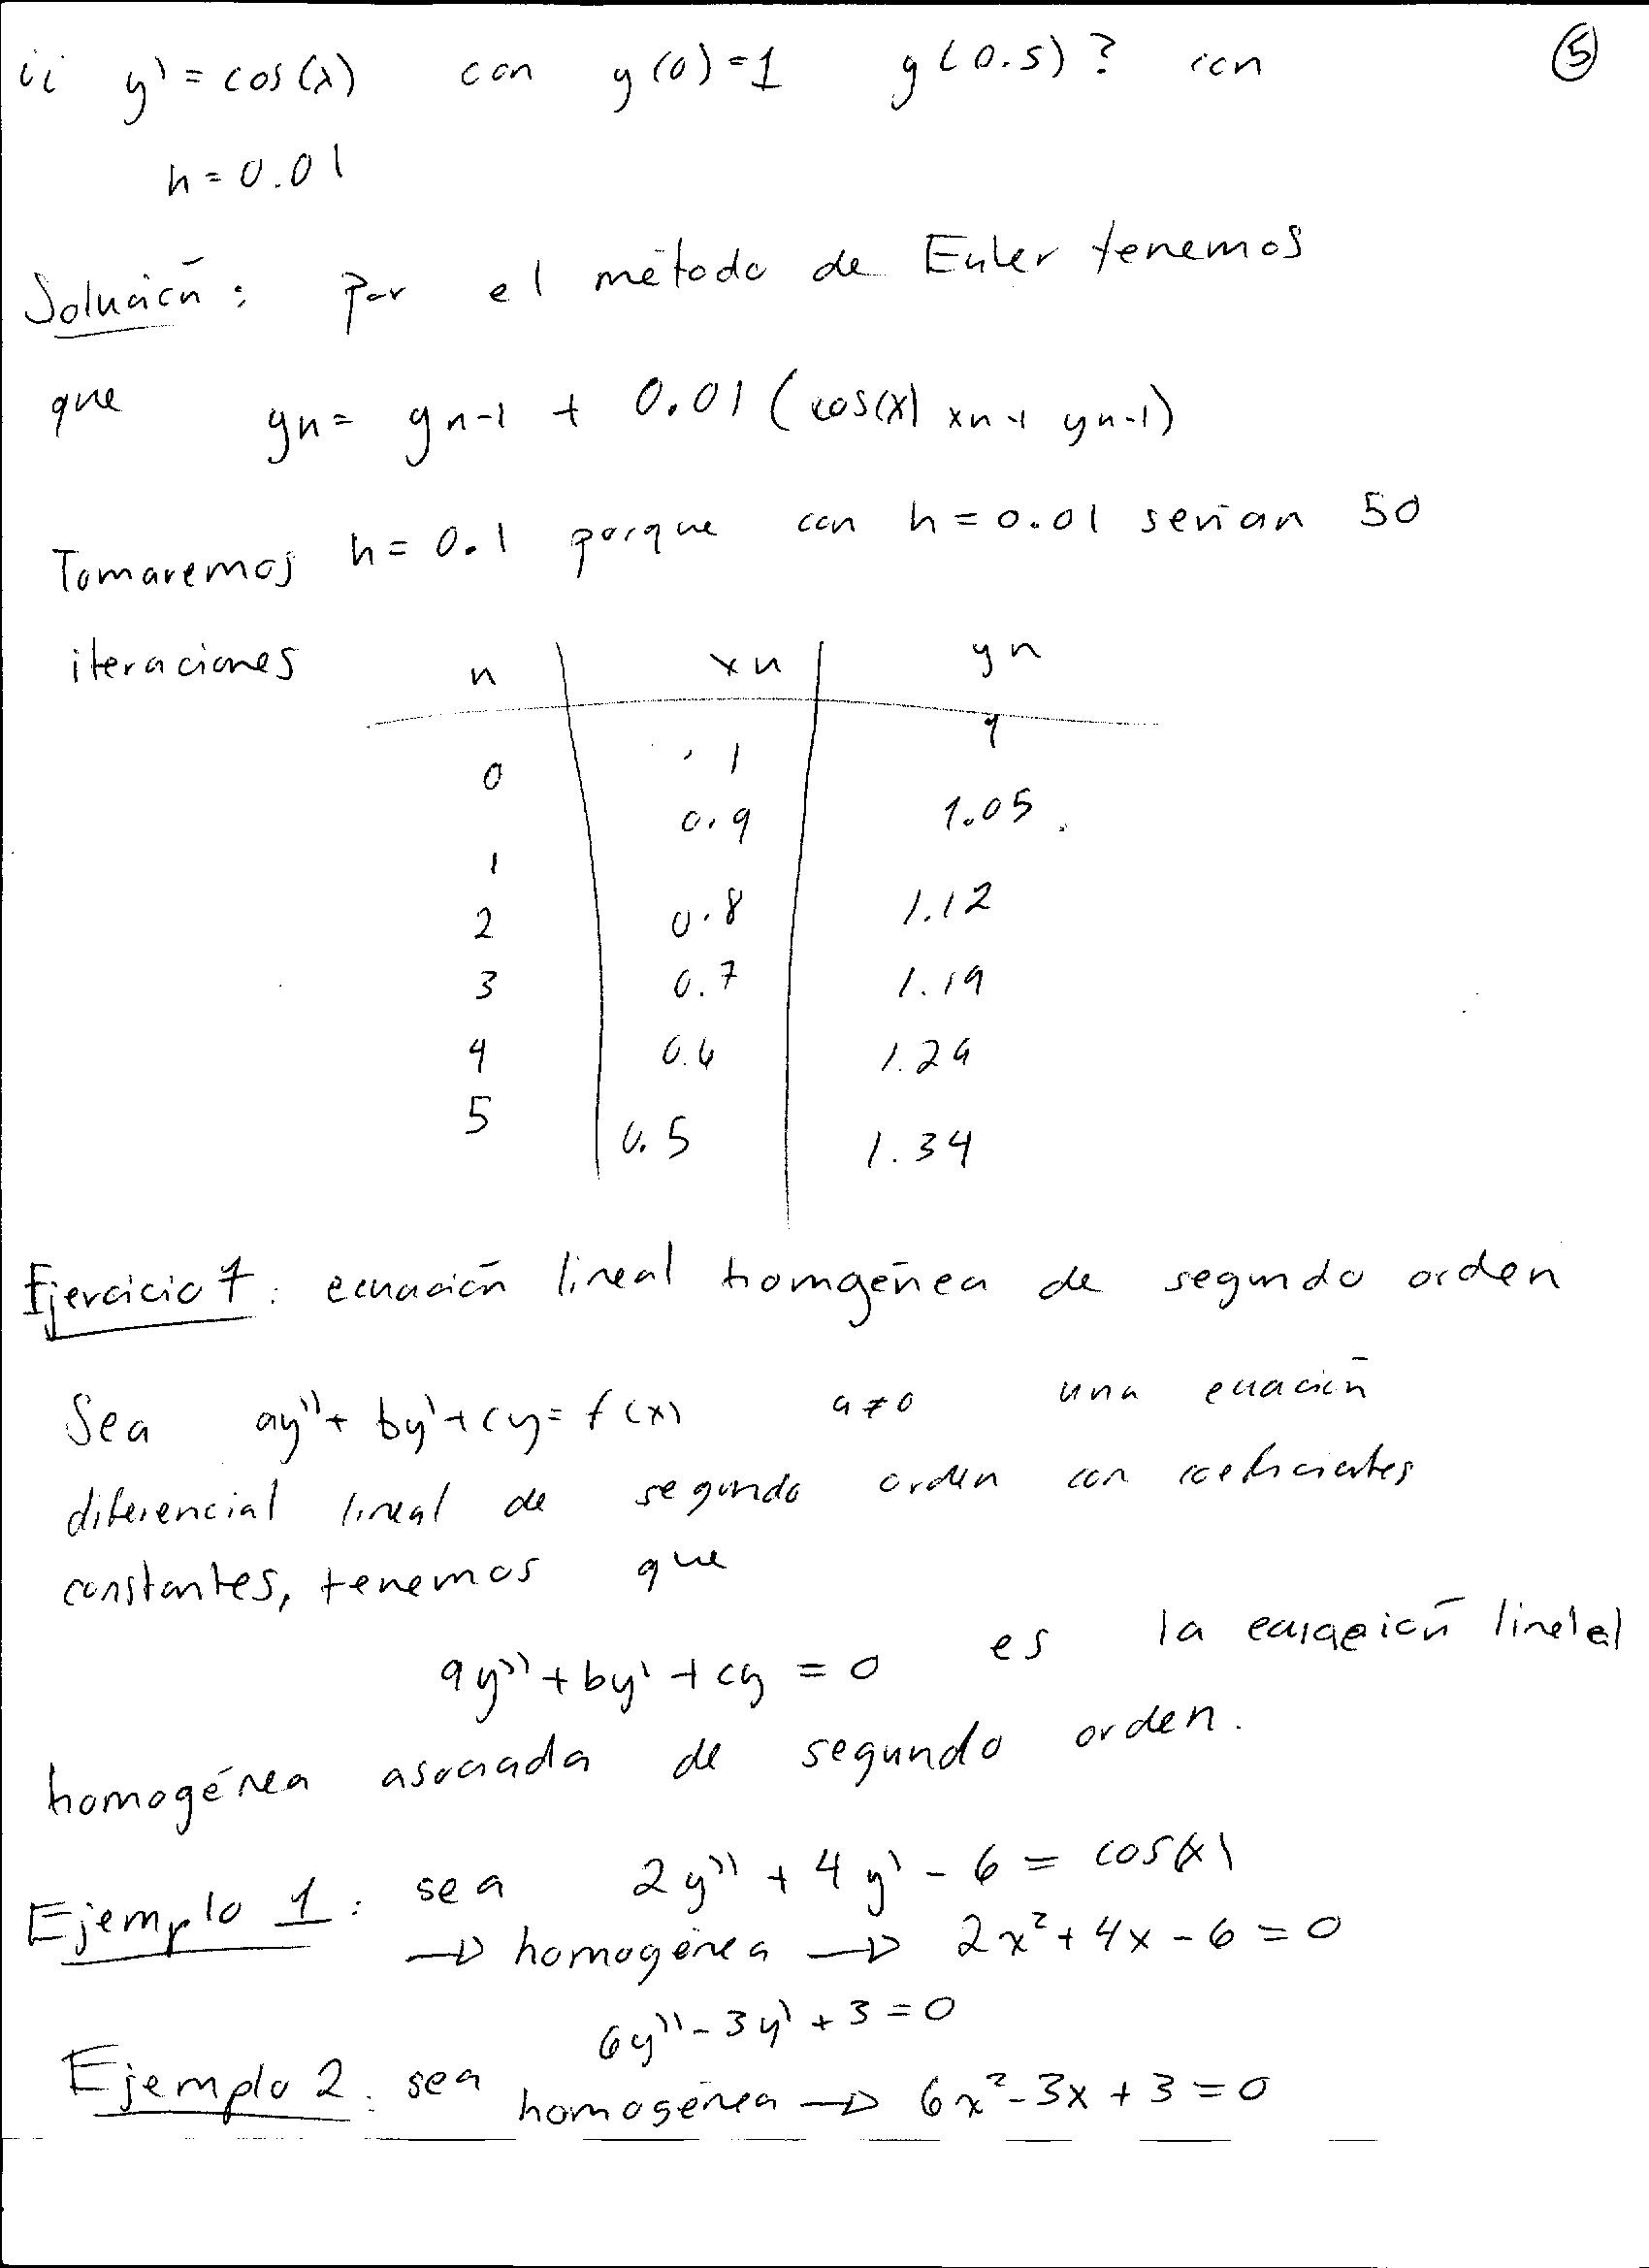 ii y' = cos(x) con y(0)=1 y(0.5)? con ⑤
h = 0.01
Solución: Por el método de Euler tenemos
que yn = yn-1 + 0.01 (cos(x) xn-1 yn-1)
Tomaremos h = 0.1 porque con h = 0.01 serian 50
iteraciones
n xn yn
0 1 1
1 0.9 1.05
2 0.8 1.12
3 0.7 1.19
4 0.6 1.29
5 0.5 1.34
Ejercicio 7: ecuación lineal homgénea de segundo orden
Sea ay'' + by' + cy = f(x) a≠0 una ecuación
diferencial lineal de segundo orden con coeficientes
constantes, tenemos que
ay'' + by' + cy = 0 es la ecuación lineal
homogénea asociada de segundo orden.
Ejemplo 1: sea 2y'' + 4y' - 6 = cos(x)
→ homogénea → 2x² + 4x - 6 = 0
Ejemplo 2: sea 6y'' - 3y' + 3 = 0
homogénea → 6x² - 3x + 3 = 0